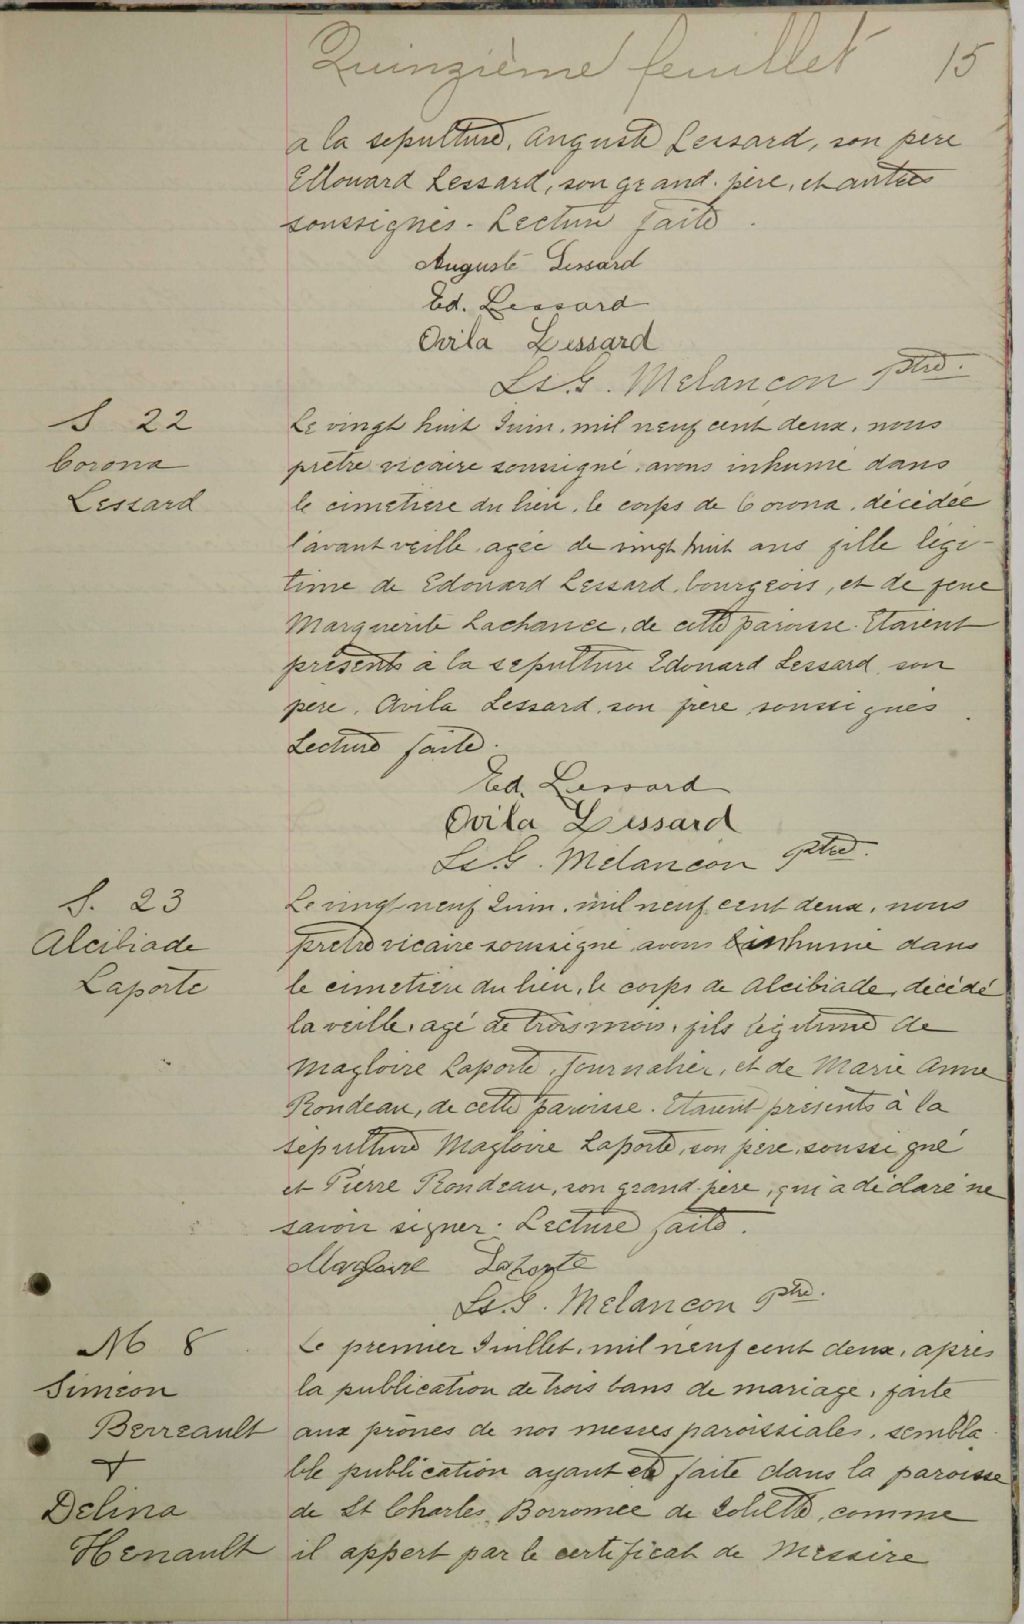 Quinzième feuillet 15
a la sepulture, Auguste Lessard, son père
Edouard Lessard, son grand-père, et autres
soussignés. Lecture faite.
Auguste Lessard
Ed. Lessard
Ovila Lessard
Ls. G. Melancon ptre.
S 22
Corona
Lessard
Le vingt huit Juin, mil neuf cent deux, nous
prêtre vicaire soussigné, avons inhumé dans
le cimetière du lieu, le corps de Corona, décédée
l'avant veille, agée de vingt huit ans fille légi-
time de Edouard Lessard, bourgeois, et de feue
Marguerite Lachance, de cette paroisse. Etaient
présents à la sepulture Edouard Lessard, son
père, Ovila Lessard, son frère, soussignés.
Lecture faite.
Ed. Lessard
Ovila Lessard
Ls. G. Melancon ptre.
S. 23
Alcibiade
Laporte
Le vingt-neuf Juin, mil neuf cent deux, nous
prêtre vicaire soussigné avons inhumé dans
le cimetière du lieu, le corps de Alcibiade, décédé
la veille, agé de trois mois, fils légitime de
Magloire Laporte, journalier, et de Marie Anne
Rondeau, de cette paroisse. Etaient présents à la
sépulture Magloire Laporte, son père, soussigné
et Pierre Rondeau, son grand-père, qui a déclaré ne
savoir signer. Lecture faite.
Magloire Laporte
Ls. G. Melancon ptre.
M 8
Siméon
Berreault
+
Delina
Henault
Le premier Juillet, mil neuf cent deux, après
la publication de trois bans de mariage, faite
aux prônes de nos messes paroissiales, sembla-
ble publication ayant été faite dans la paroisse
de St Charles Borromée de Joliette, comme
il appert par le certificat de Messire